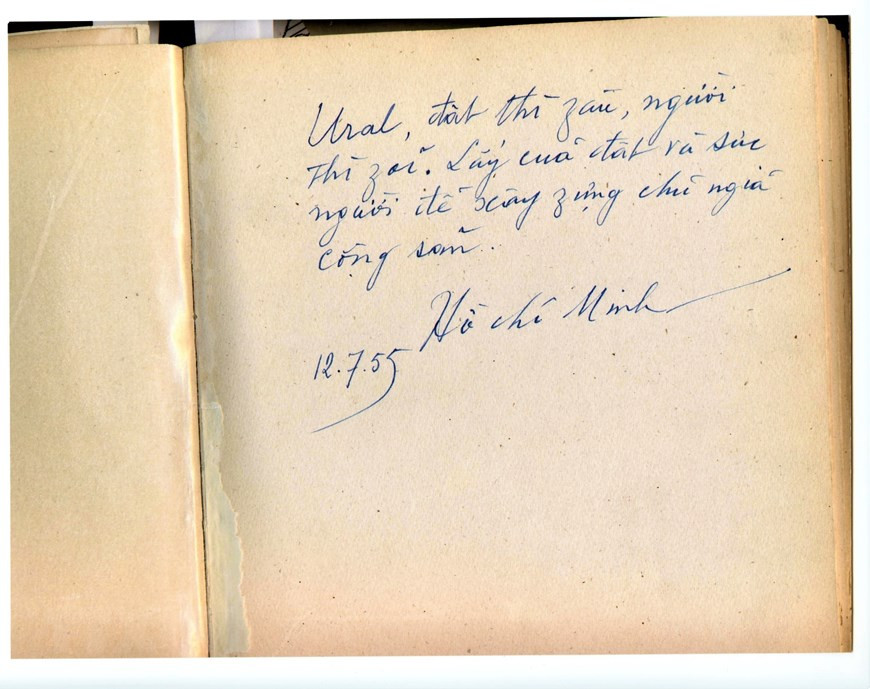 Ural, đất thì zầu, người
thì zỏi. Lấy cuả đất và sức
người để xây zựng chủ ngiã
cộng sản.
Hồ chí Minh
12.7.55